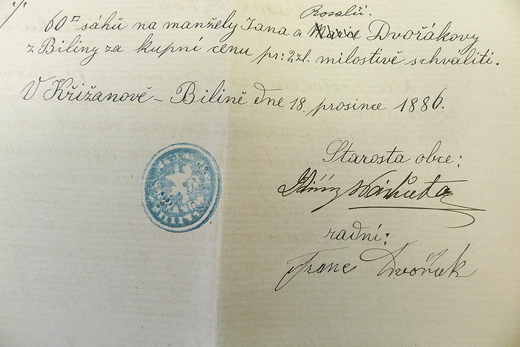 Rosalii.
60□ sáhů na manžely Jana a Marie Dvořákovy
z Biliny za kupní cenu pr: 2 zl. milostivě schváliti.
V Křižanově - Bilině dne 18. prosince 1886.
Starosta obce:
radní:
Franc Dvořák